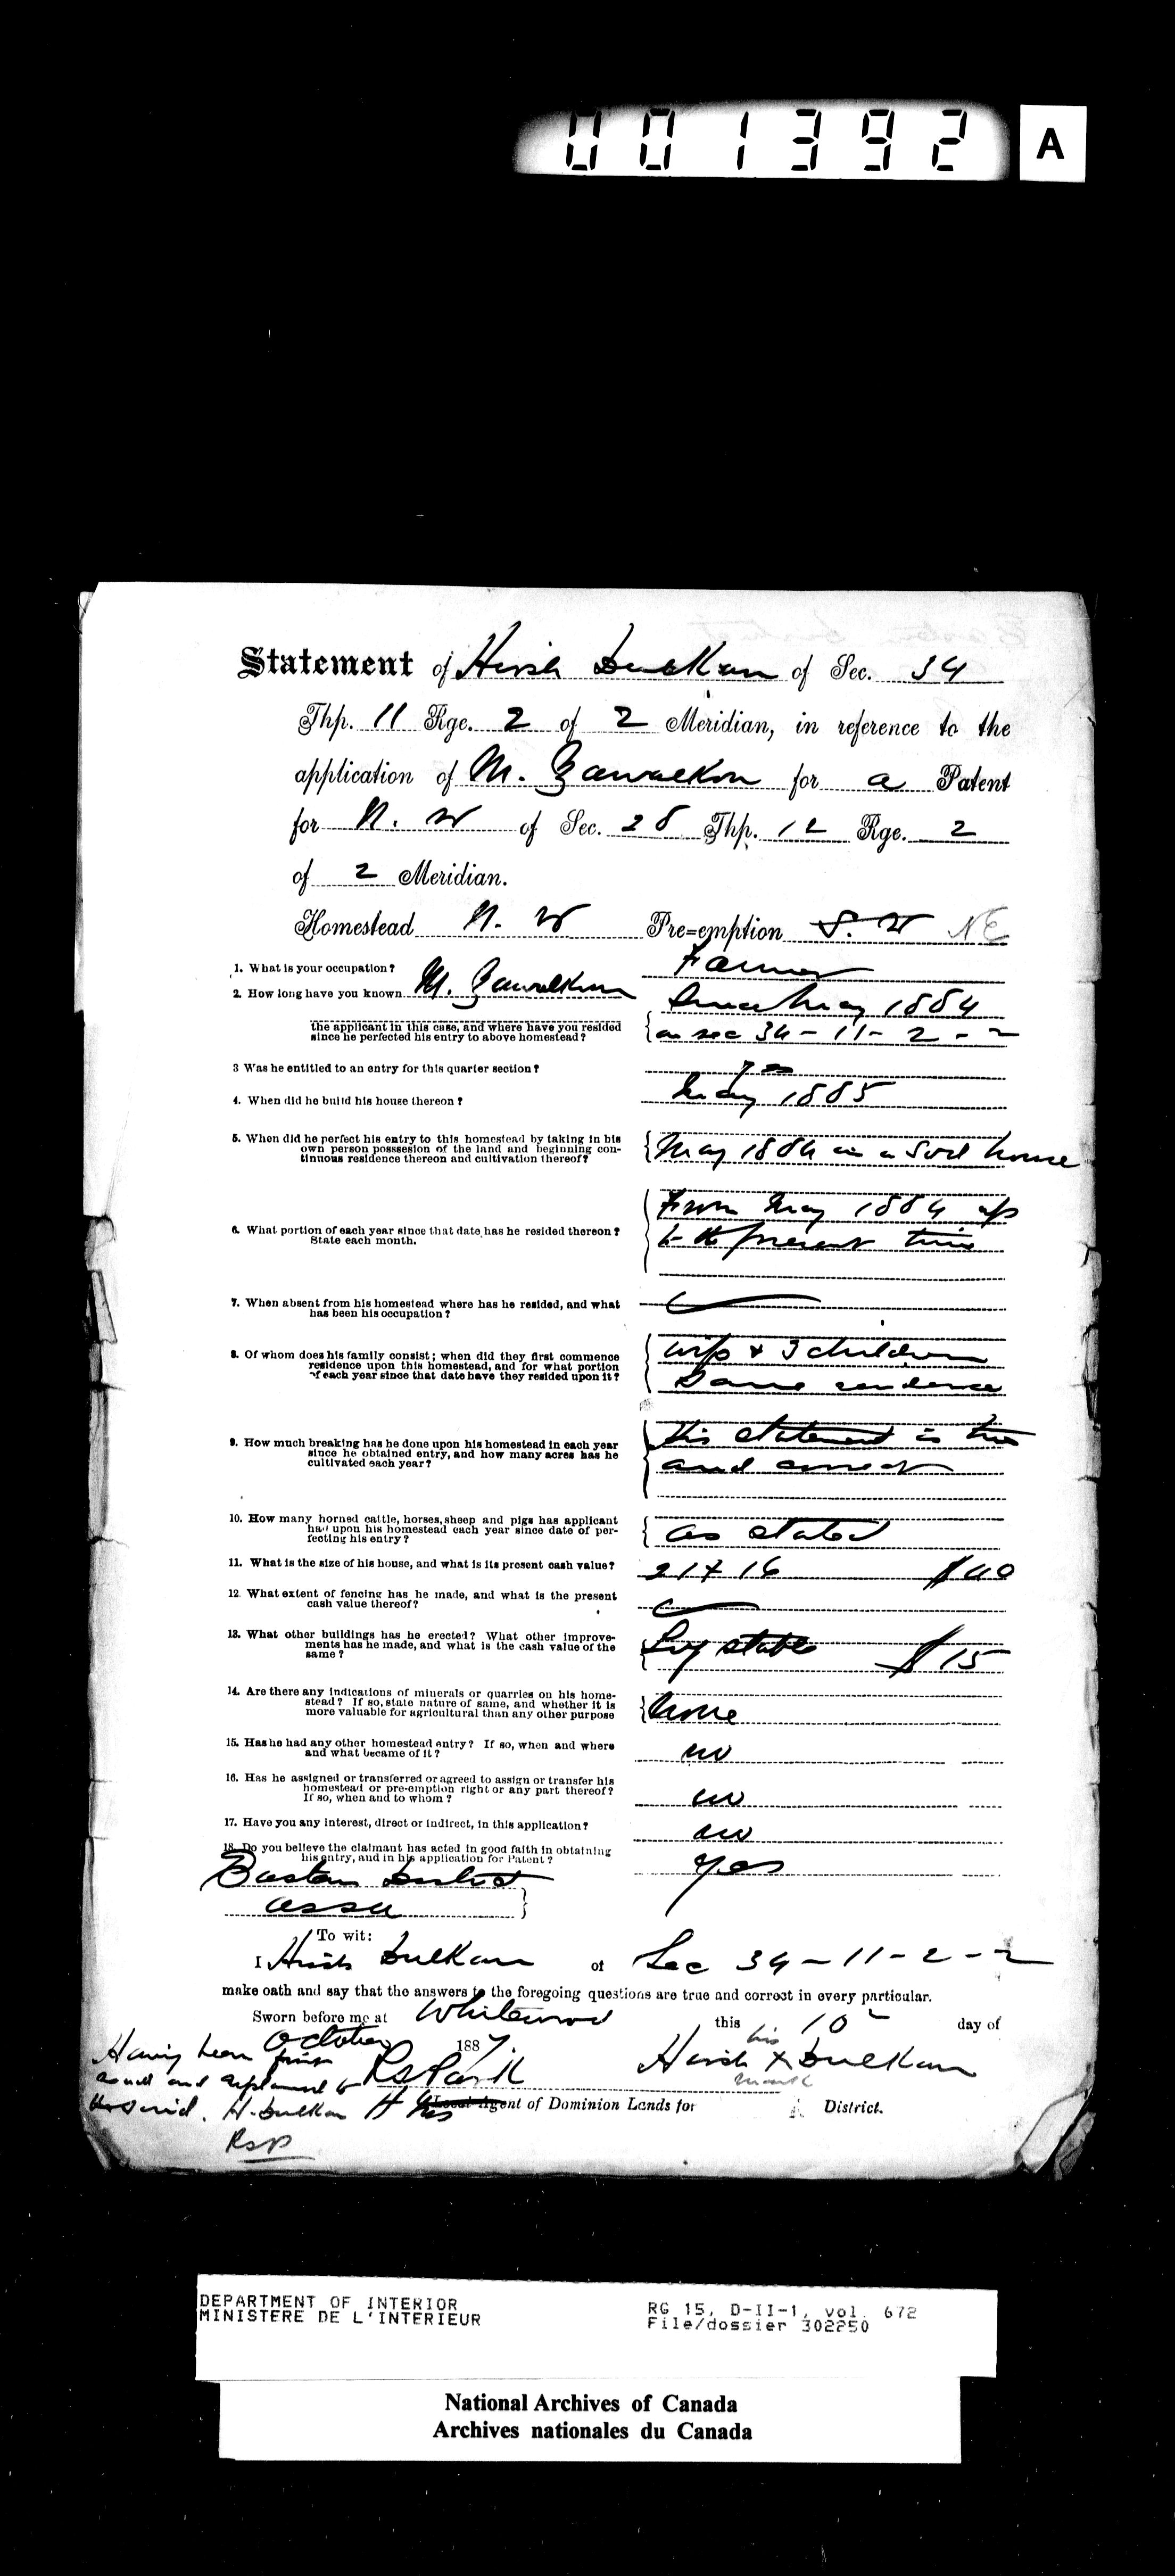 001392 A
Statement of Hirsh Bulkan of Sec. 34
Thp. 11 Rge. 2 of 2 Meridian, in reference to the
application of M. Zawalkon for a Patent
for N. W of Sec. 28 Thp. 12 Rge. 2
of 2 Meridian.
Homestead N. W Pre=emption S. W NE
1. What is your occupation? Farmer
2. How long have you known M. Zawalkon Since May 1884
the applicant in this case, and where have you resided
since he perfected his entry to above homestead? on sec 34-11-2-2
3 Was he entitled to an entry for this quarter section? yes
4. When did he build his house thereon? May 1885
5. When did he perfect his entry to this homestead by taking in his
own person possession of the land and beginning con-
tinuous residence thereon and cultivation thereof? May 1884 in a Sod house
6. What portion of each year since that date has he resided thereon?
State each month. From May 1884 up
to the present time
7. When absent from his homestead where has he resided, and what
has been his occupation?
8. Of whom does his family consist; when did they first commence
residence upon this homestead, and for what portion
of each year since that date have they resided upon it? wife & 3 children
Same residence
9. How much breaking has he done upon his homestead in each year
since he obtained entry, and how many acres has he
cultivated each year? His statement is true
and correct
10. How many horned cattle, horses, sheep and pigs has applicant
had upon his homestead each year since date of per-
fecting his entry? as stated
11. What is the size of his house, and what is its present cash value? 21 x 16 $40
12. What extent of fencing has he made, and what is the present
cash value thereof?
13. What other buildings has he erected? What other improve-
ments has he made, and what is the cash value of the
same? Log stable $15
14. Are there any indications of minerals or quarries on his home-
stead? If so, state nature of same, and whether it is
more valuable for agricultural than any other purpose None
15. Has he had any other homestead entry? If so, when and where
and what became of it? no
16. Has he assigned or transferred or agreed to assign or transfer his
homestead or pre-emption right or any part thereof?
If so, when and to whom? no
17. Have you any interest, direct or indirect, in this application? no
18. Do you believe the claimant has acted in good faith in obtaining
his entry, and in his application for Patent? yes
Eastern District
Assa
To wit:
I Hirsh Bulkan of Sec 34-11-2-2
make oath and say that the answers to the foregoing questions are true and correct in every particular.
Sworn before me at Whitewood this 10 day of
October 1887. his
Having been first Hirsh X Bulkan
read and explained to R S Park mark
the said H. Bulkan Local Agent of Dominion Lands for District.
RSP
DEPARTMENT OF INTERIOR
MINISTERE DE L'INTERIEUR
RG 15, D-II-1, vol. 672
File/dossier 302250
National Archives of Canada
Archives nationales du Canada